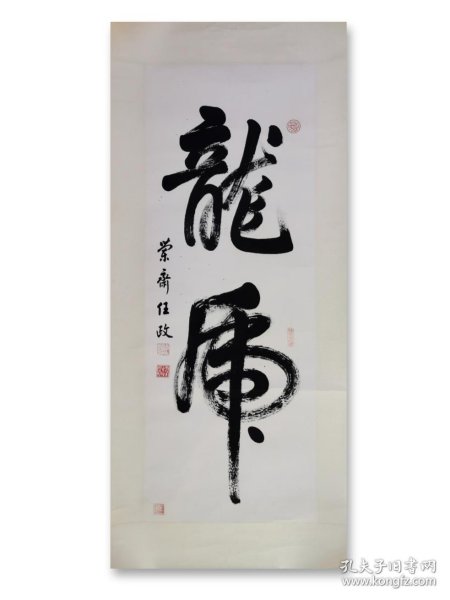 龍虎
兰斋任政
孔夫子旧书网
www.kongfz.com